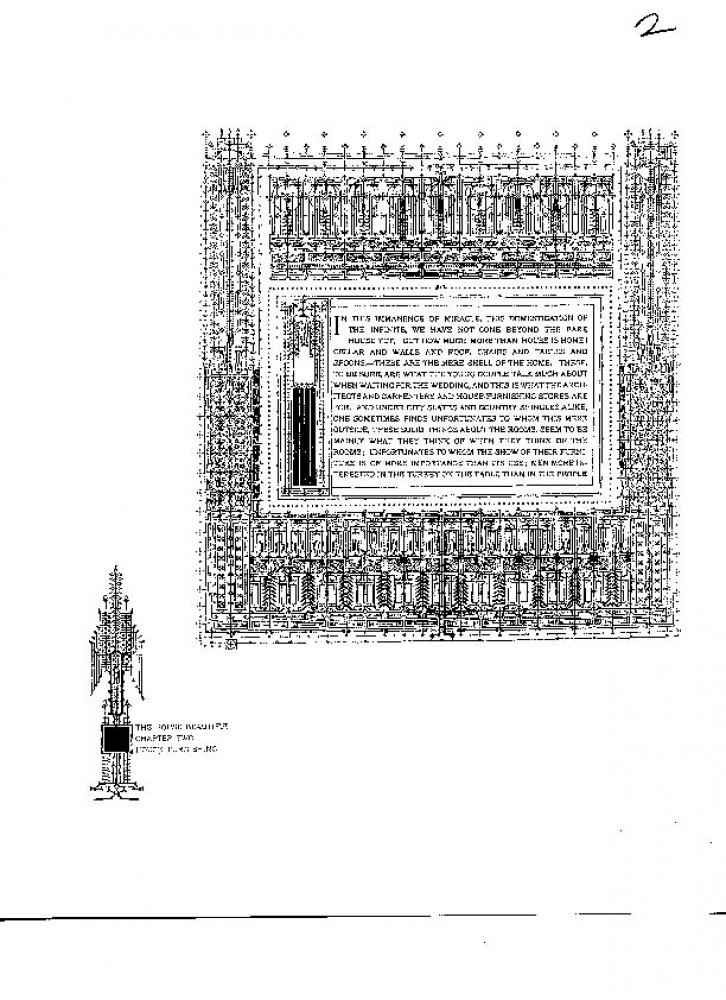 2
IN THIS IMMANENCE OF MIRACLE, THIS DOMESTICATION OF
THE INFINITE, WE HAVE NOT GONE BEYOND THE BARE
HOUSE YET. BUT HOW MUCH MORE THAN HOUSE IS HOME!
CELLAR AND WALLS AND ROOF, CHAIRS AND TABLES AND
SPOONS,—THESE ARE THE MERE SHELL OF THE HOME. THESE,
TO BE SURE, ARE WHAT THE YOUNG COUPLE TALK MUCH ABOUT
WHEN WAITING FOR THE WEDDING, AND THIS IS WHAT THE ARCHI-
TECTS AND CARPENTERS AND HOUSE-FURNISHING STORES ARE
FOR. AND UNDER CITY SLATES AND COUNTRY SHINGLES ALIKE,
ONE SOMETIMES FINDS UNFORTUNATES TO WHOM THIS MERE
OUTSIDE, THESE SOLID THINGS ABOUT THE ROOMS, SEEM TO BE
MAINLY WHAT THEY THINK OF WHEN THEY THINK OF THE
ROOMS; UNFORTUNATES TO WHOM THE SHOW OF THEIR FURNI-
TURE IS OF MORE IMPORTANCE THAN ITS USE; MEN MORE IN-
TERESTED IN THE TURKEY ON THE TABLE THAN IN THE PEOPLE
THE HOUSE BEAUTIFUL
CHAPTER TWO
HOUSE FURNISHING